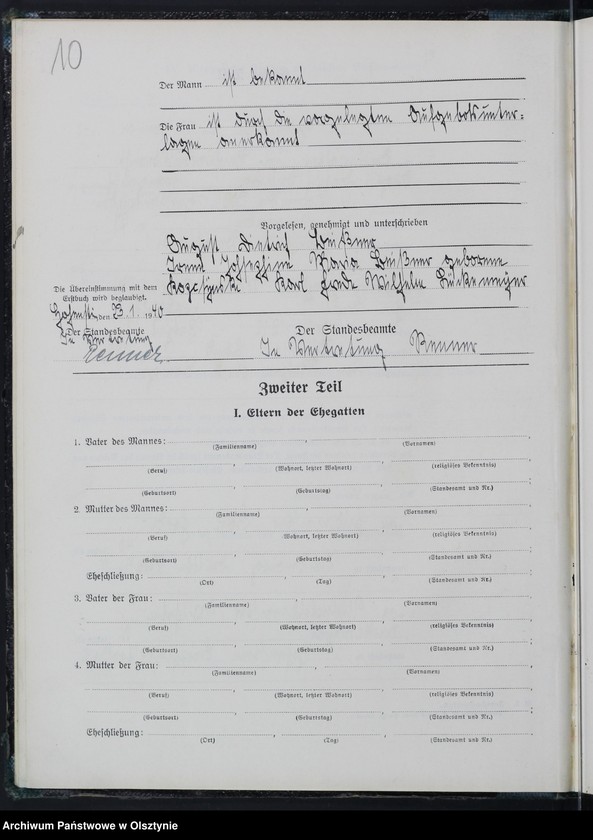 10
Der Mann ist bekannt
Die Frau ist durch die vorgelegten Aufgebotsunter=
lagen anerkannt
Vorgelesen, genehmigt und unterschrieben
August Dietrich Meißner
Maria Meißner geborene
Karl Wilhelm
Die Übereinstimmung mit dem
Erstbuch wird beglaubigt.
den 23. 1. 1940
Der Standesbeamte
In Vertretung
Renner
Der Standesbeamte
In Vertretung Renner
Zweiter Teil
I. Eltern der Ehegatten
1. Vater des Mannes:
(Familienname) (Vornamen)
(Beruf) (Wohnort, letzter Wohnort) (religiöses Bekenntnis)
(Geburtsort) (Geburtstag) (Standesamt und Nr.)
2. Mutter des Mannes:
(Familienname) (Vornamen)
(Beruf) Wohnort, letzter Wohnort) (religiöses Bekenntnis)
(Geburtsort) (Geburtstag) (Standesamt und Nr.)
Eheschließung:
(Ort) (Tag) (Standesamt und Nr.)
3. Vater der Frau:
(Familienname) (Vornamen)
(Beruf) (Wohnort, letzter Wohnort) (religiöses Bekenntnis)
(Geburtsort) (Geburtstag) (Standesamt und Nr.)
4. Mutter der Frau:
(Familienname) (Vornamen)
(Beruf) (Wohnort, letzter Wohnort) (religiöses Bekenntnis)
(Geburtsort) (Geburtstag) (Standesamt und Nr.)
Eheschließung:
(Ort) (Tag) (Standesamt und Nr.)
Archiwum Państwowe w Olsztynie